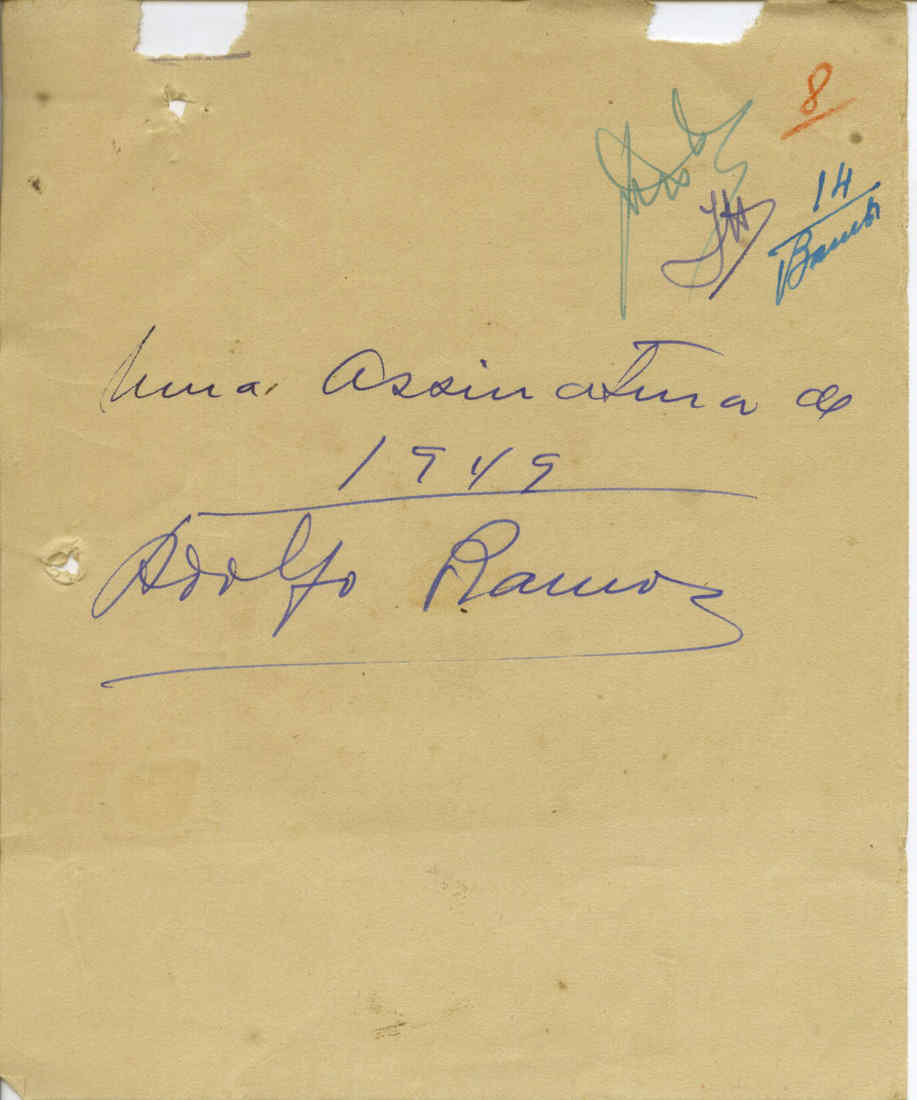 8
14
Uma Assinatura de
1949
Adolfo Ramos